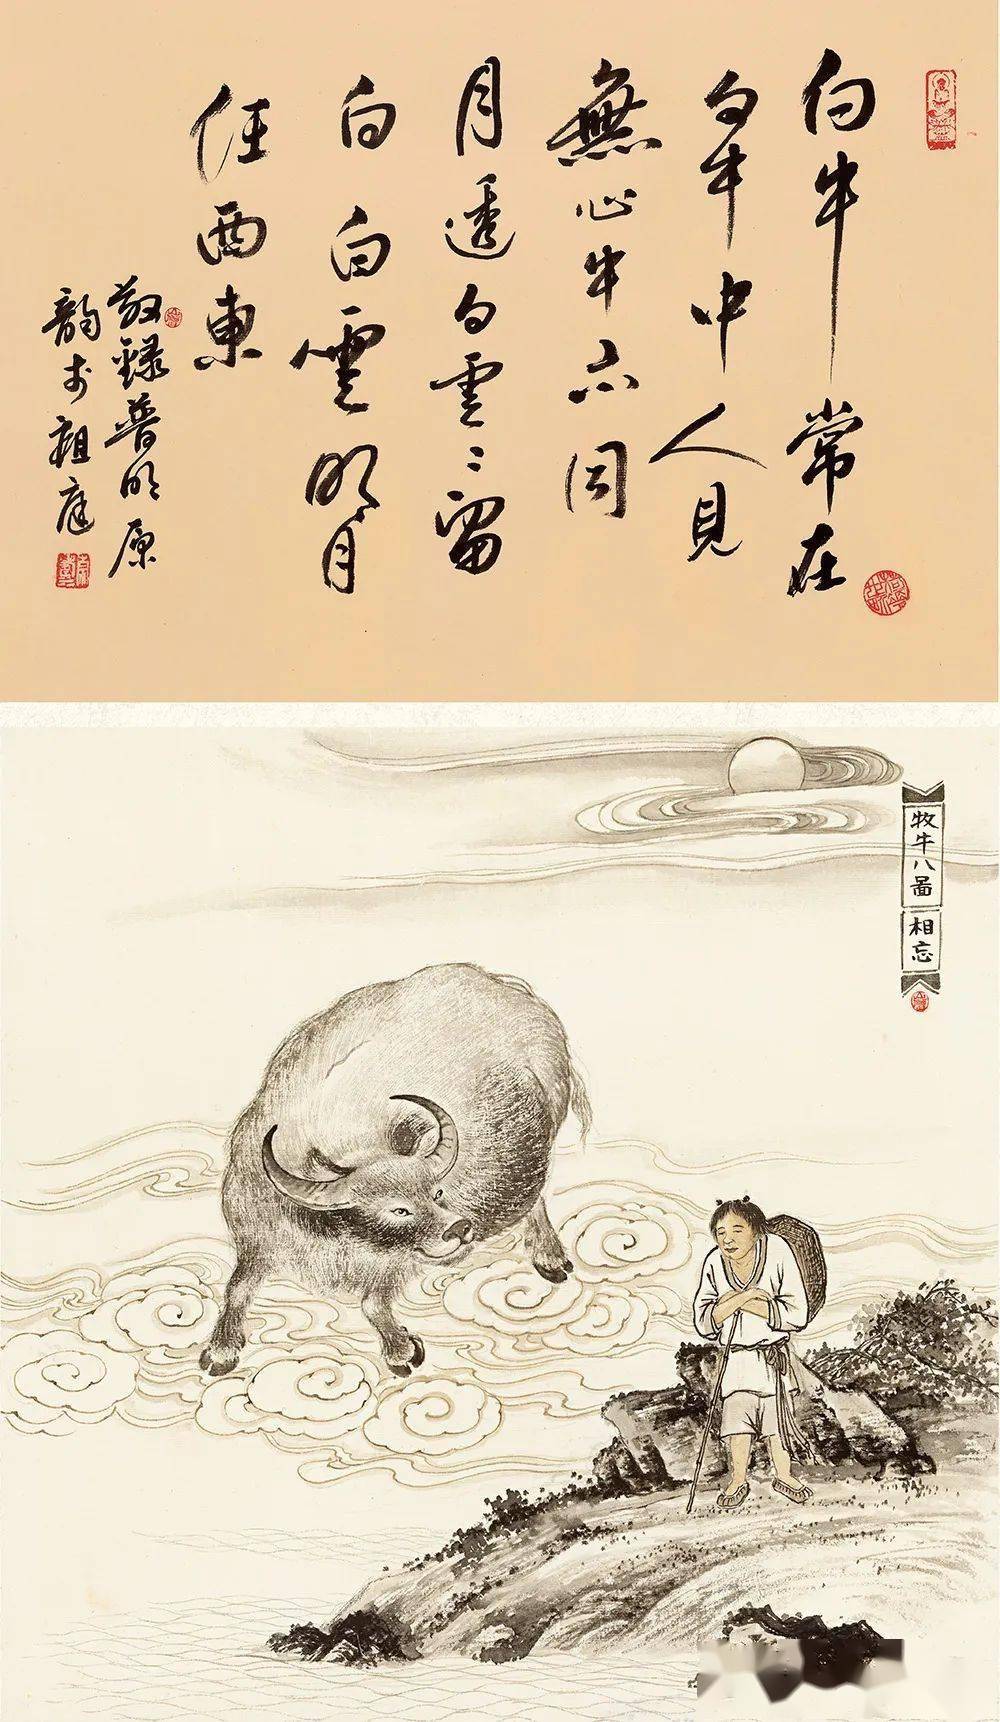 白牛常在
白牛中人見
無心牛亦同
月透白雲〻留
白白雲明月
任西東
敬錄普明原
韻於祖庭
牧牛八圖
相忘